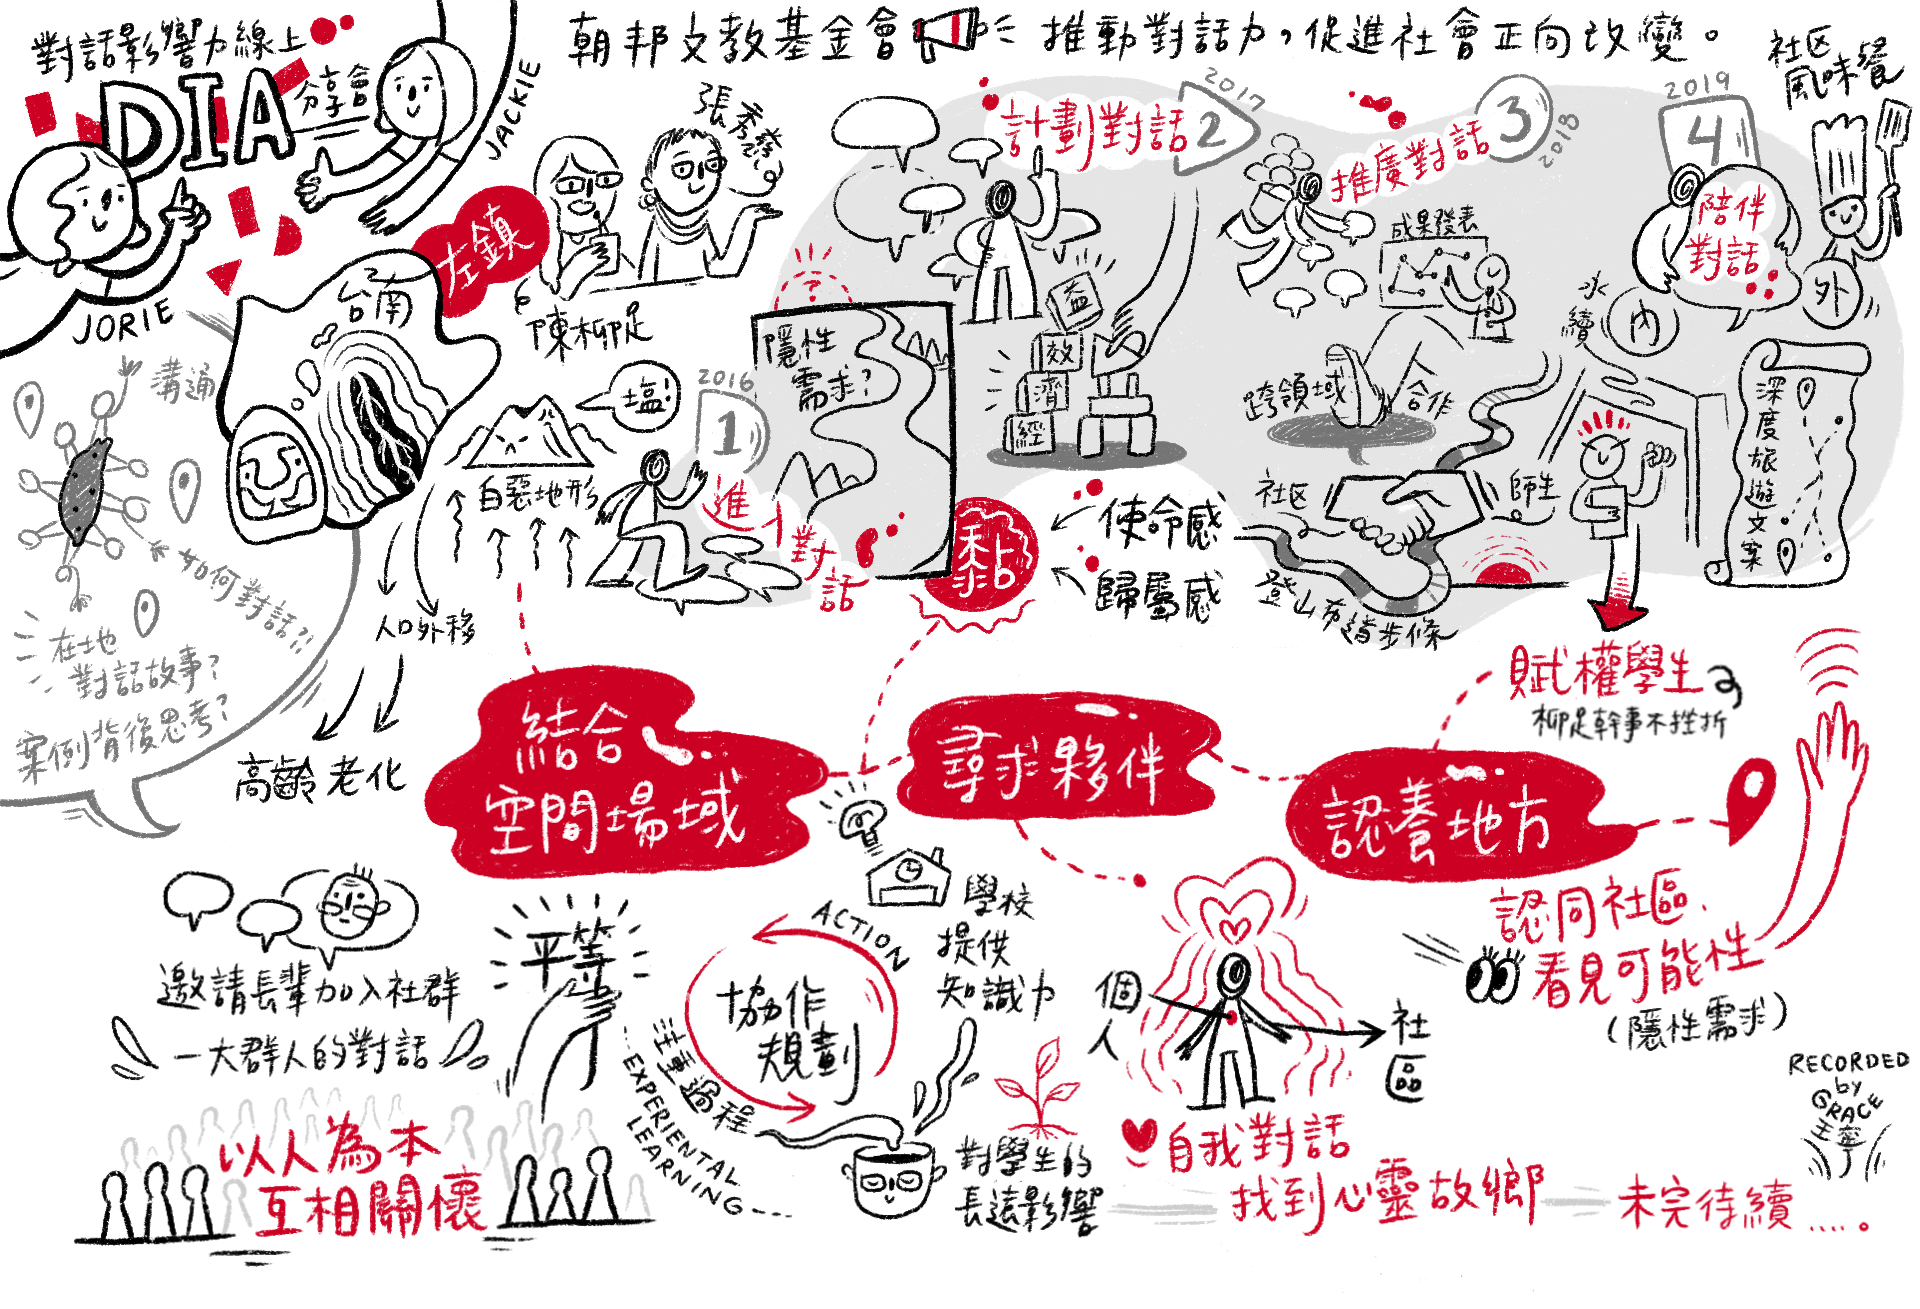 對話影響力線上
分享會
DIA
JACKIE
JORIE
朝邦文教基金會
推動對話力，促進社會正向改變。
左鎮
台南
張秀發
陳柳足
溝通
如何對話?!
在地
對話故事?
案例背後思考?
塩!
白惡地形
人口外移
高齡老化
2016
1
進行對話
?
隱性
需求?
2017
2
計劃對話
益
效
濟
經
2018
3
推廣對話
成果發表
跨領域
合作
2019
4
陪伴
對話
社区
風味餐
永續
內
外
深度旅遊文案
黏
使命感
歸屬感
社区
師生
登山布道步條
賦權學生
柳足幹事不挫折
結合
空間場域
尋求夥伴
認養地方
邀請長輩加入社群
一大群人的對話
以人為本
互相關懷
平等
ACTION
協作
規劃
注重過程
EXPERIENTAL
LEARNING
學校
提供
知識力
對學生的
長遠影響
個人
社區
自我對話
找到心靈故鄉
認同社區、
看見可能性
(隱性需求)
未完待續.....。
RECORDED
by
GRACE
王寧